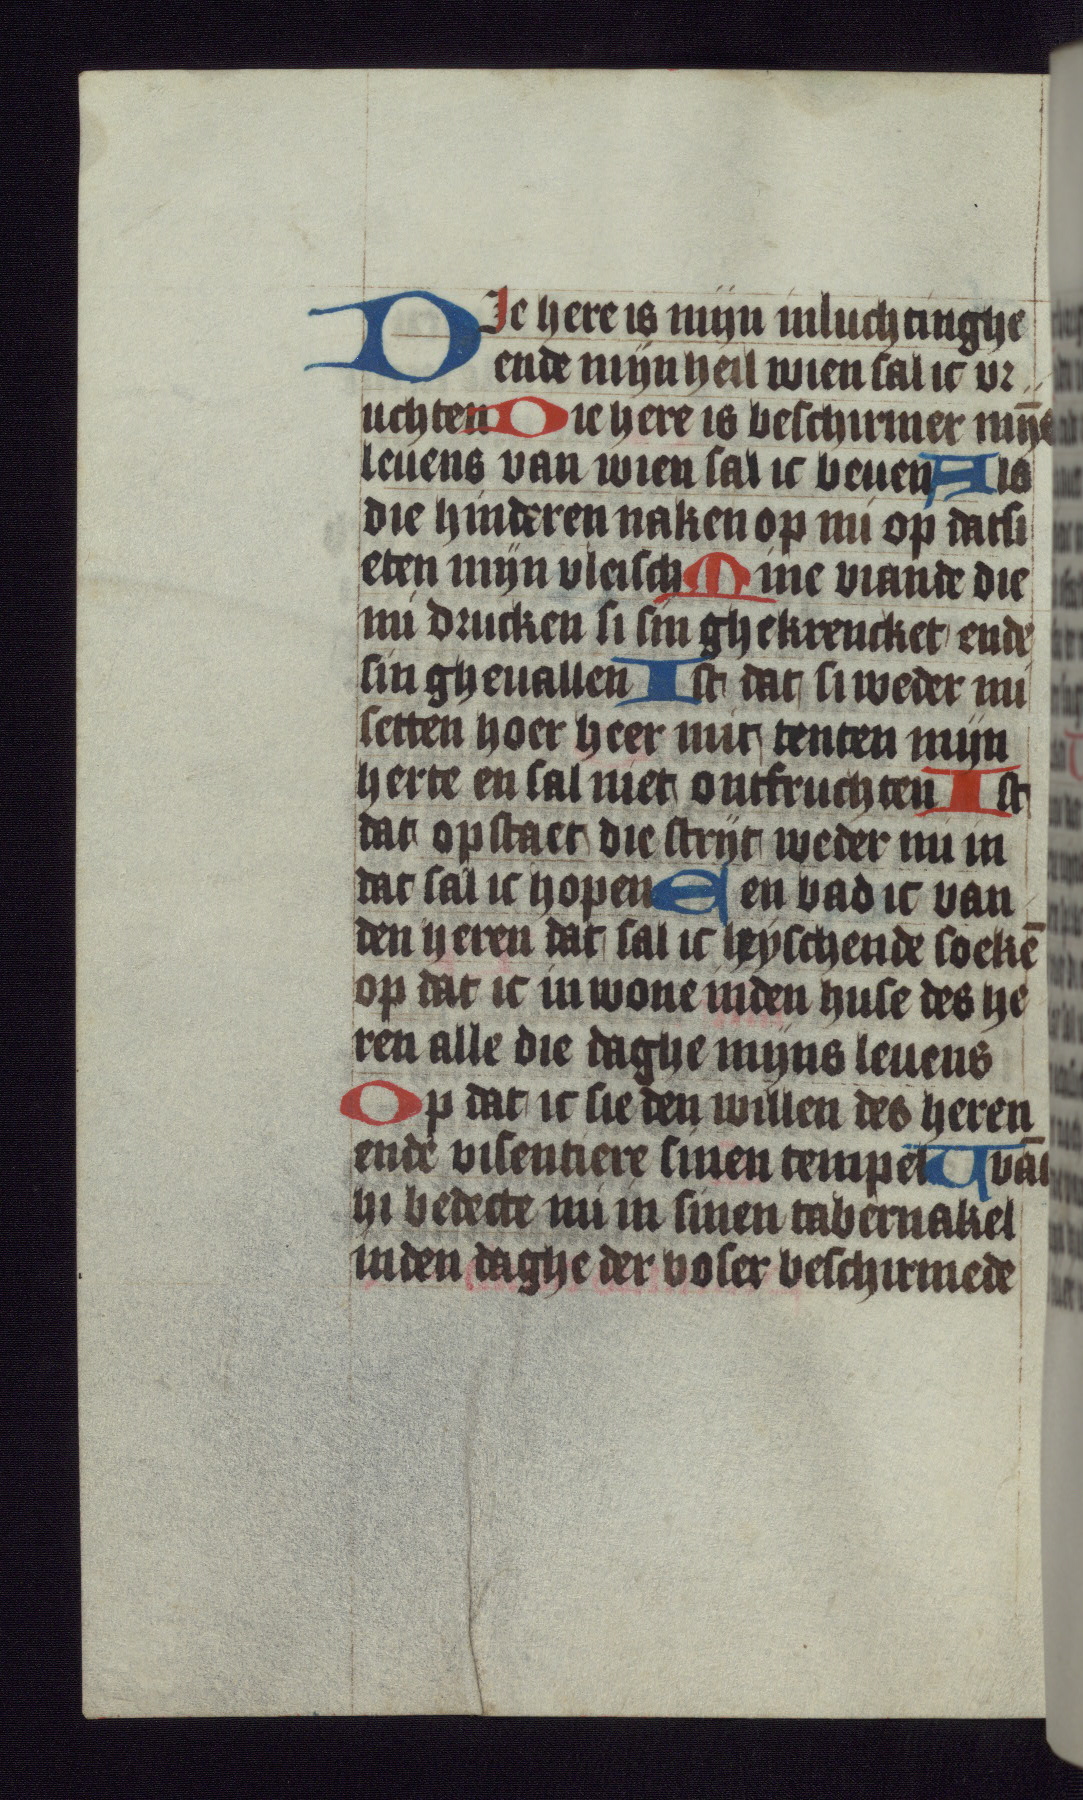 DIe here is mijn inluchtinghe
ende mijn heil wien sal ic vr
uchten Die here is beschirmer mijn̄s
leuens van wien sal ic beuen Als
die hinderen naken op mi op dat si
eten mijn vleisch Mine viande die
mi drucken si sin ghekrencket ende
sin gheuallen Ist dat si weder mi
setten hoer heer mit tenten mijn
herte en sal niet ontfruchten Ist
dat opstaet die strijt weder mi in
dat sal ic hopen Een bad ic van
den heren dat sal ic heyschende soekē
op dat ic in wone inden huse des he
ren alle die daghe mijns leuens
Op dat ic sie den willen des heren
ende visentiere sinen tempel Want
hi bedecte mi in sinen tabernakel
inden daghe der boser beschirmede